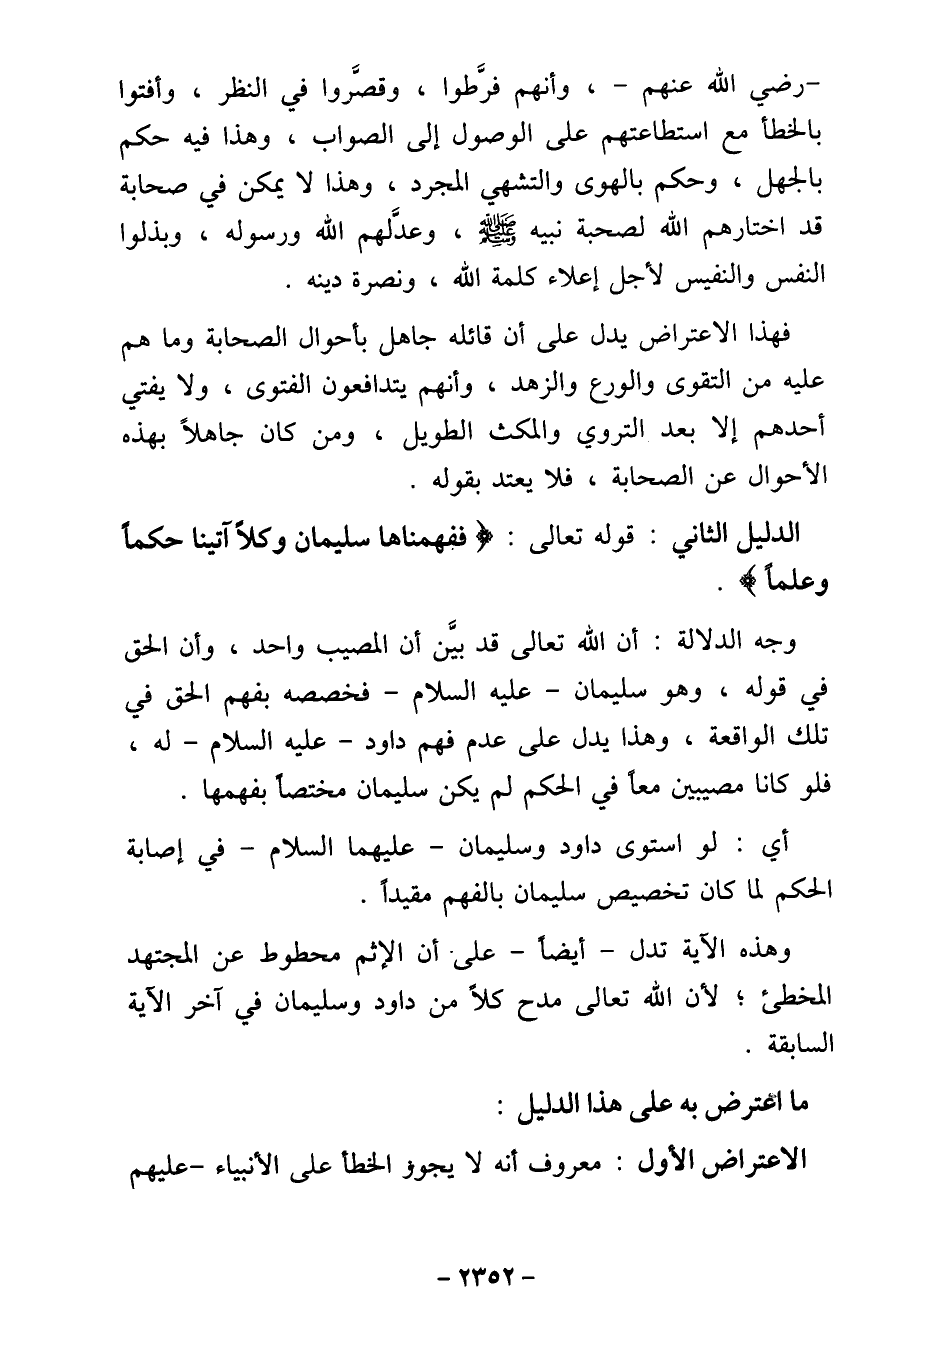 -رضي الله عنهم - ، وأنهم فرَّطوا ، وقصَّروا في النظر ، وأفتوا
بالخطأ مع استطاعتهم على الوصول إلى الصواب ، وهذا فيه حكم
بالجهل ، وحكم بالهوى والتشهي المجرد ، وهذا لا يمكن في صحابة
قد اختارهم الله لصحبة نبيه ﷺ ، وعدَّلهم الله ورسوله ، وبذلوا
النفس والنفيس لأجل إعلاء كلمة الله ، ونصرة دينه .
فهذا الاعتراض يدل على أن قائله جاهل بأحوال الصحابة وما هم
عليه من التقوى والورع والزهد ، وأنهم يتدافعون الفتوى ، ولا يفتي
أحدهم إلا بعد التروي والمكث الطويل ، ومن كان جاهلاً بهذه
الأحوال عن الصحابة ، فلا يعتد بقوله .
الدليل الثاني : قوله تعالى : ﴿ ففهمناها سليمان وكلاً آتينا حكماً
وعلماً ﴾ .
وجه الدلالة : أن الله تعالى قد بيَّن أن المصيب واحد ، وأن الحق
في قوله ، وهو سليمان - عليه السلام - فخصصه بفهم الحق في
تلك الواقعة ، وهذا يدل على عدم فهم داود - عليه السلام - له ،
فلو كانا مصيبين معاً في الحكم لم يكن سليمان مختصاً بفهمها .
أي : لو استوى داود وسليمان - عليهما السلام - في إصابة
الحكم لما كان تخصيص سليمان بالفهم مقيداً .
وهذه الآية تدل - أيضاً - على أن الإثم محطوط عن المجتهد
المخطئ ؛ لأن الله تعالى مدح كلاً من داود وسليمان في آخر الآية
السابقة .
ما اعترض به على هذا الدليل :
الاعتراض الأول : معروف أنه لا يجوز الخطأ على الأنبياء -عليهم
- ٢٣٥٢ -